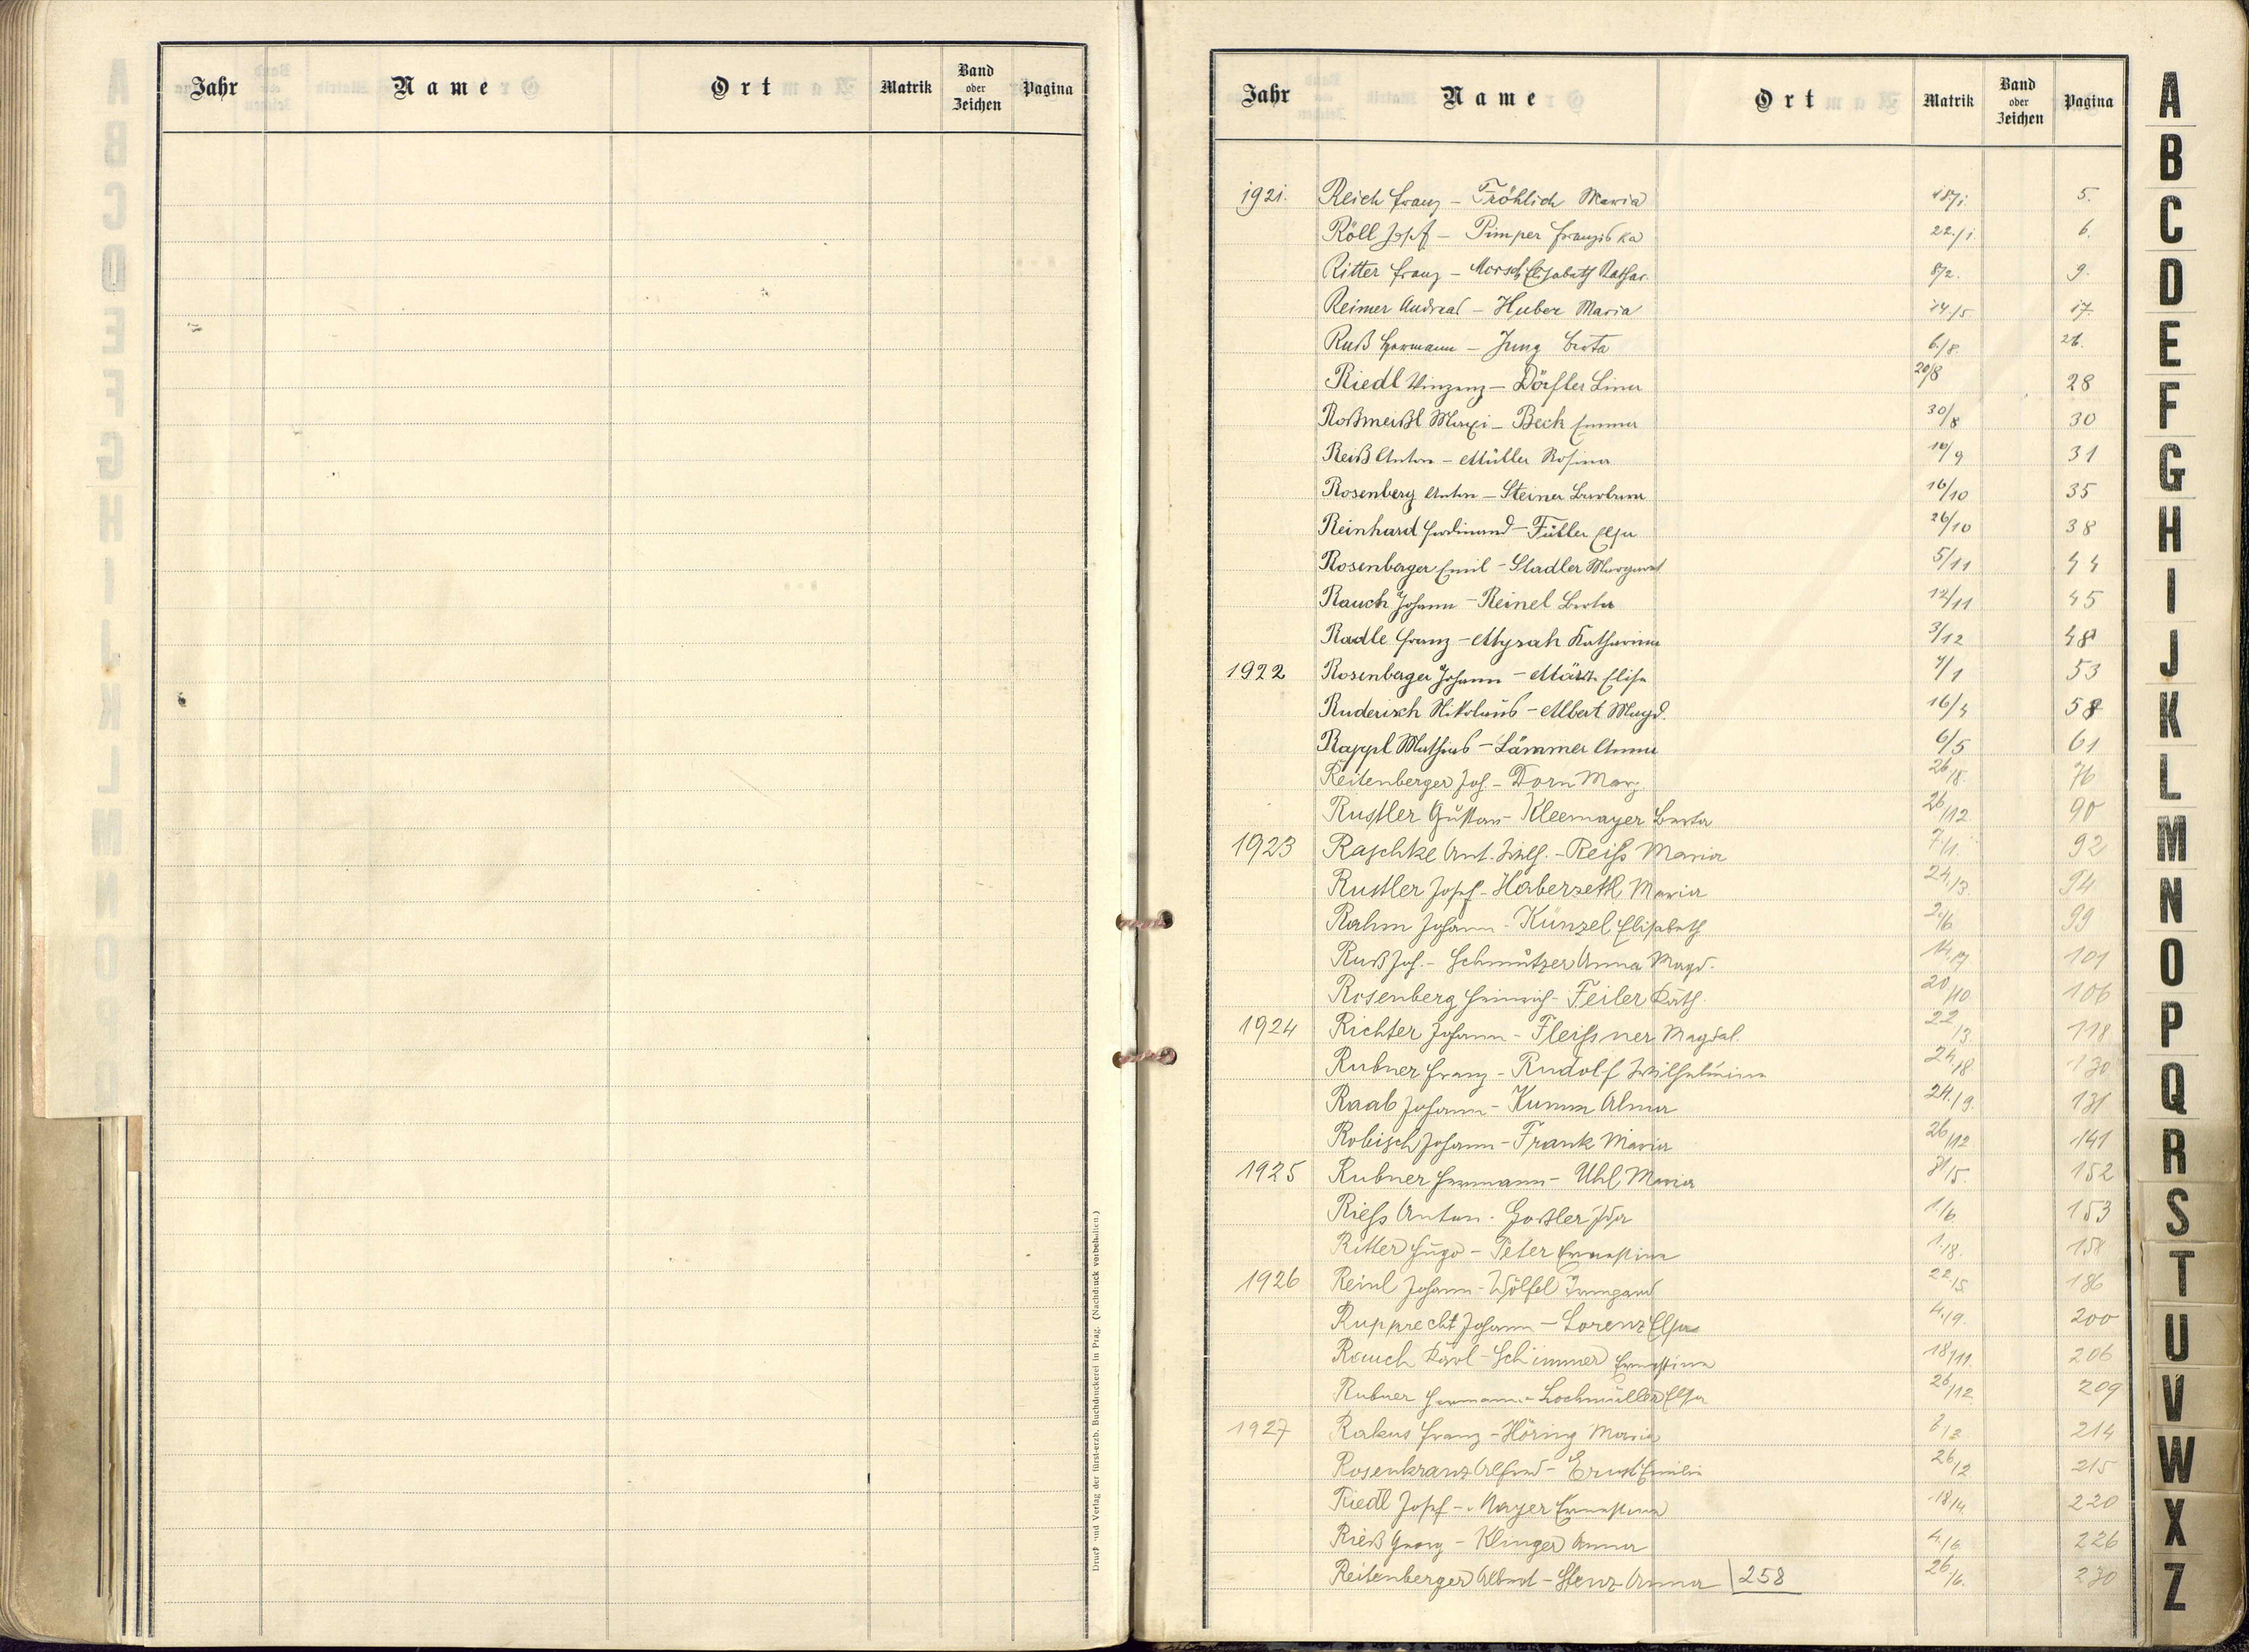 Jahr Name Ort Matrik Band oder Zeichen Pagina
Druck und Verlag der fürst-erzb. Buchdruckerei in Prag. (Nachdruck vorbehalten.)
Jahr Name Ort Matrik Band oder Zeichen Pagina
1921. Reich Franz – Fröhlich Maria 18/1. 5.
Röll Josef – Pimper Franziska 22./1. 6.
Ritter Franz – Morsch Elisabeth Kathar. 8/2. 9.
Reimer Andreas – Huber Maria 14./5 17.
Ruß Hermann – Jung Berta 6./8. 26.
Riedl Vinzenz – Dörfler Lina 20/8 28
Roßmeißl Maxi – Beck Emma 30/8 30
Reiß Anton – Müller Rosina 10/9 31
Rosenberg Anton – Steiner Barbara 16/10 35
Reinhard Ferdinand – Füller Elsa 26/10 38
Rosenberger Emil – Stadler Margaret 5/11 44
Rauch Johann – Reinel Berta 12/11 45
Radle Franz – Myrah Katharina 3/12 48
1922 Rosenberger Johann – Elisa 7/1 53
Ruderisch Nikolaus – Albert Magd. 16/4 58
Rappl Mathias – Lämmer Anna 6/5 61
Reitenberger Jos. – Dorn Marg. 26/8. 76
Rustler Gustav – Kleemayer Berta 26/12 90
1923 Raschke Ant. Wilh. – Reiss Maria 7/1. 92
Rustler Josef – Haberzettl Maria 24./3. 94
Rahm Johann – Künzel Elisabeth 2./6. 99
Ruß Jos. – Schmutzer Anna Magd. 14./7 101
Rosenberg Heinrich – Feiler Kath. 20/10 106
1924 Richter Johann – Fleissner Magdal. 22/3. 118
Rubner Franz – Rudolf Wilhelmine 24./8. 130
Raab Johann – Kumm Alma 24./9. 131
Robisch Johann – Frank Maria 26/12 141
1925 Rubner Hermann – Uhl Maria 31/5. 152
Riess Anton – Goßler Ida 1./6. 153
Ritter Hugo – Peter Ernestine 1./8. 158
1926 Reinl Johann – Wölfel Irmgard 22./5 186
Rupprecht Johann – Lorenz Elsa 4./9. 200
Rauch Karl – Schimmer Ernestine 18/11. 206
Rubner Hermann – Lochmüller Elsa 26/12. 209
1927 Rakus Franz – Höring Maria 214
Rosenkranz Alfred – Ernst Emilie 26/2 215
Riedl Josef – Mayer Ernestina 18/4. 220
Rieß Georg – Klinger Anna 4./6. 226
Reitenberger Albert – Stenz Anna 258 26/6. 230
A
B
C
D
E
F
G
H
I
J
K
L
M
N
O
P
Q
R
S
T
U
V
W
X
Z